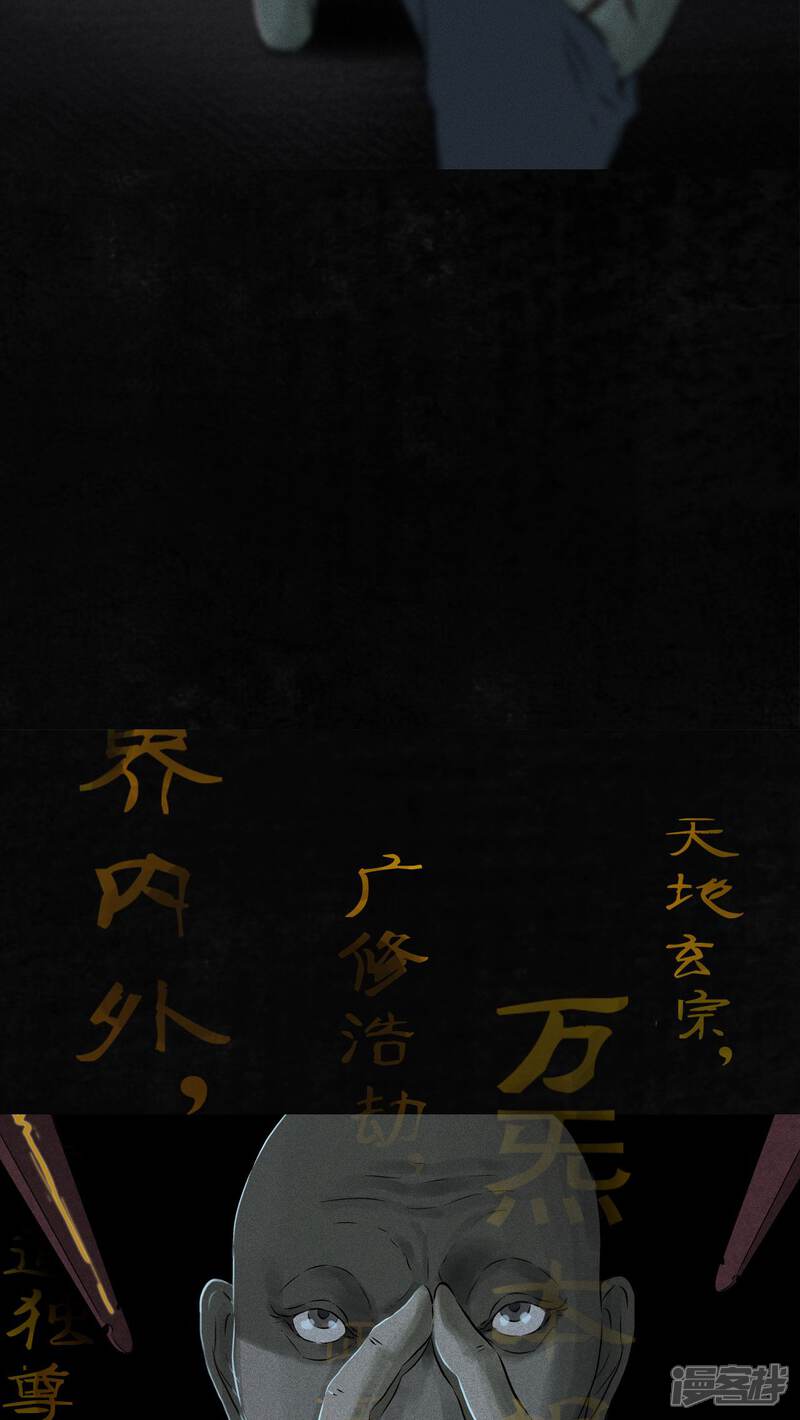 天地玄宗，
万炁本
广修浩劫，
界内外，
独尊
漫客栈